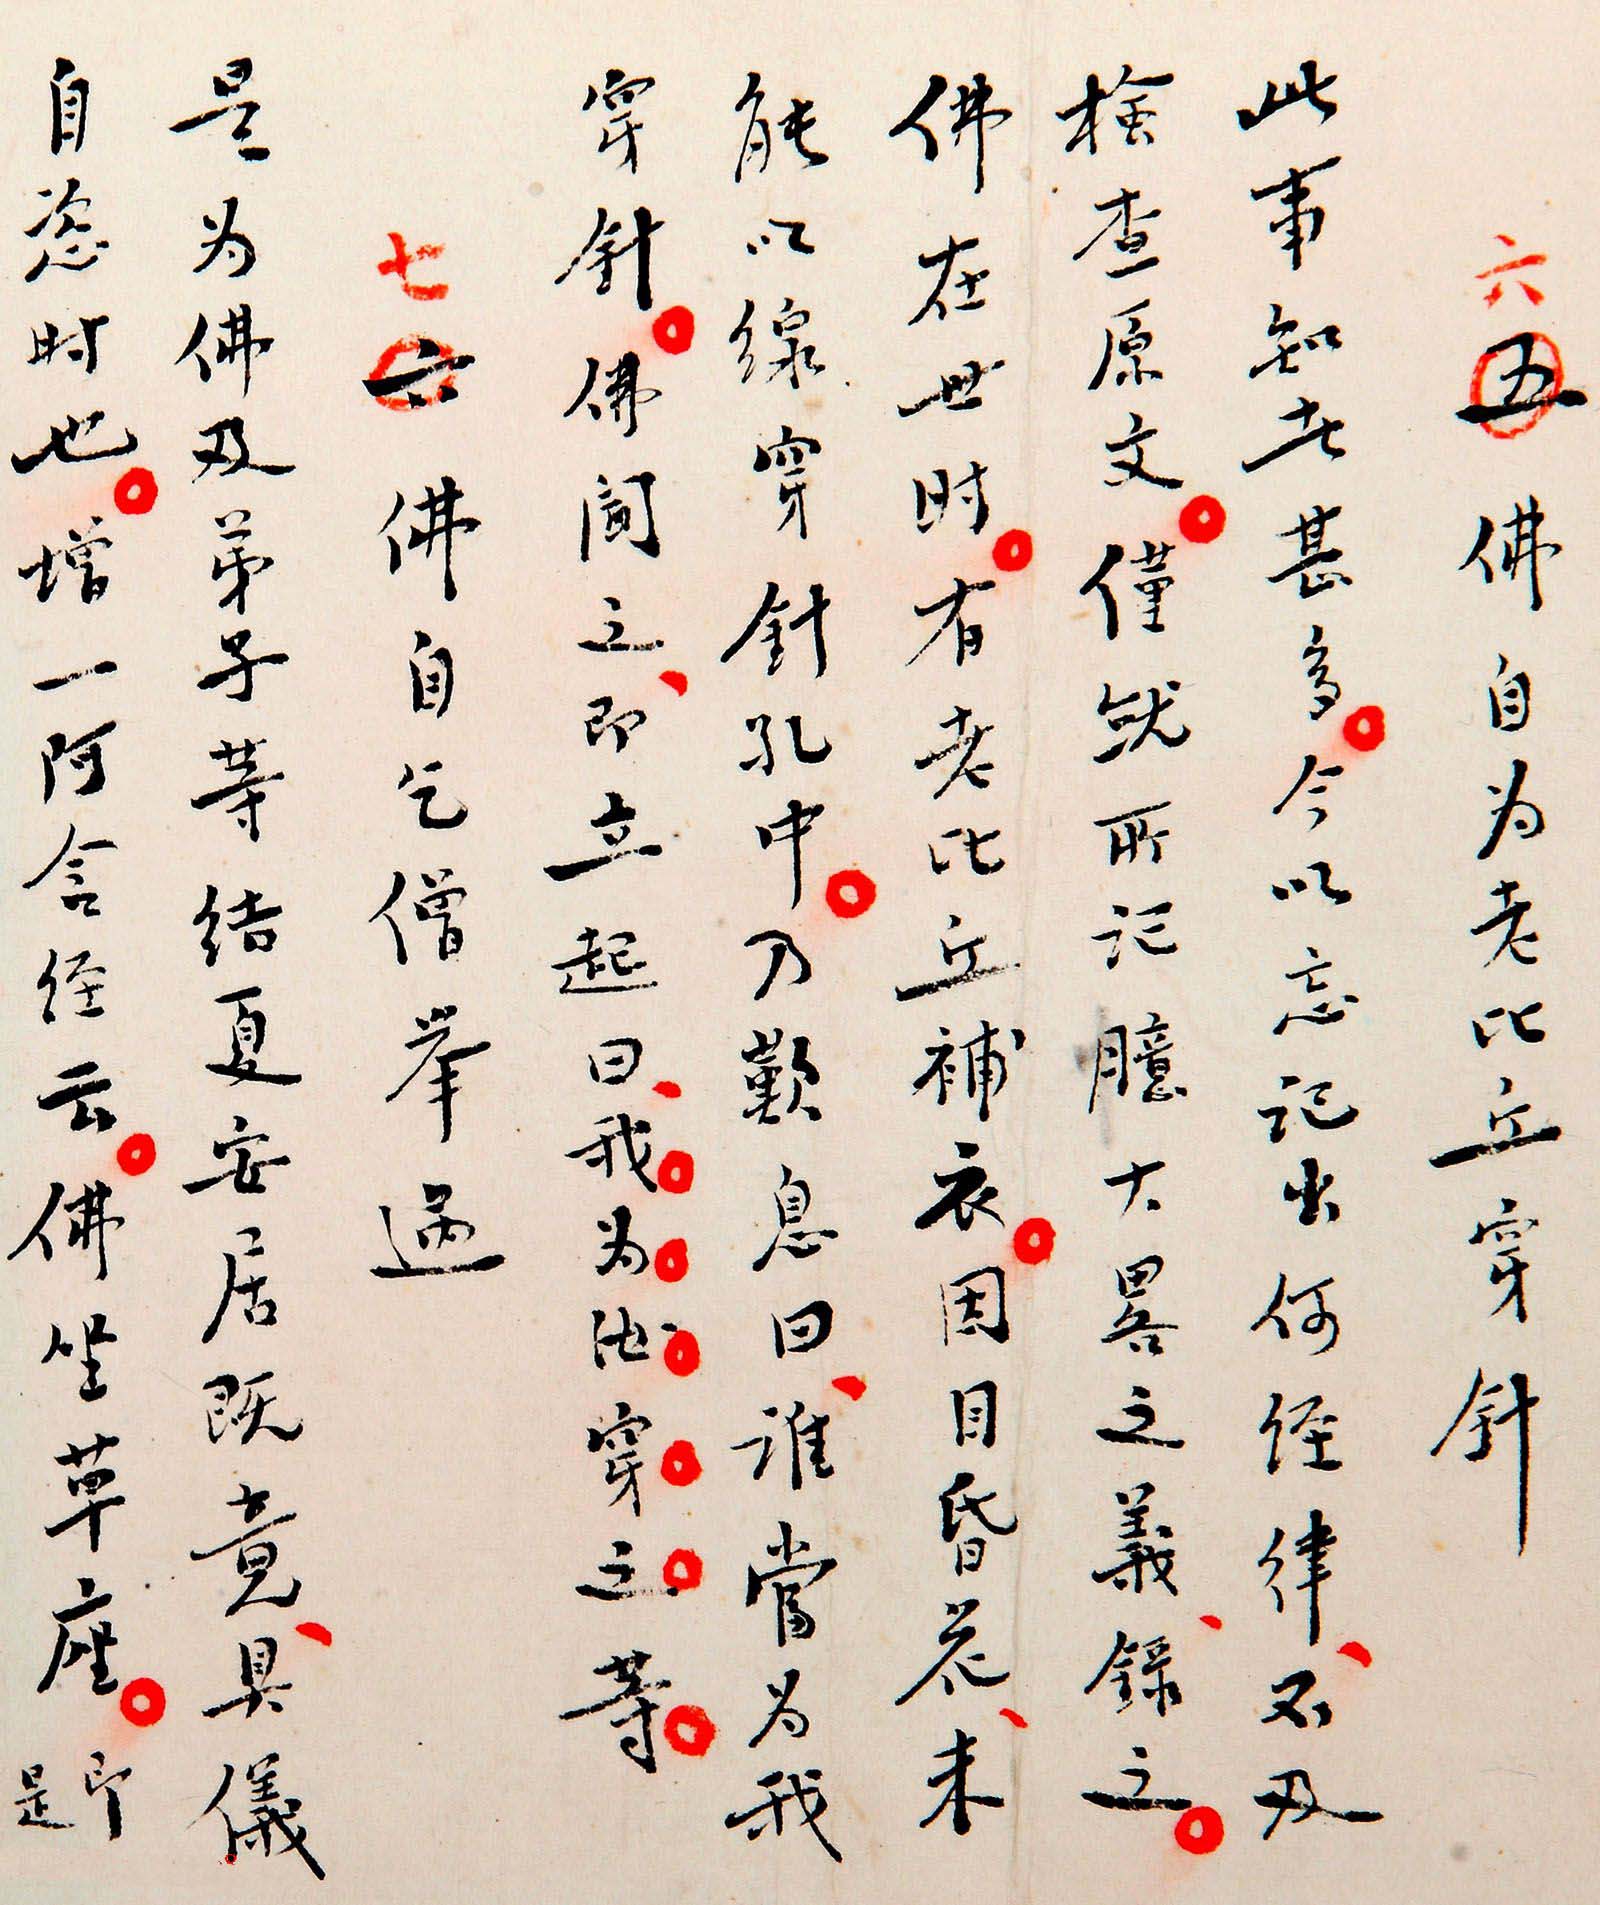 六五佛自为老比丘穿針
此事知者甚多。今以忘记出何经律、不及
檢查原文。僅就所记臆大畧之義、録之。
佛在世时。有老比丘補衣。因目昏花、未
能以線穿針孔中。乃歎息曰、谁當为我
穿針。佛聞之、即立起曰、我。为。汝。穿。之。等。
七六佛自乞僧举過
是为佛及弟子等结夏安居既竟、具儀
自恣时也。增一阿含经云。佛坐草座。即是